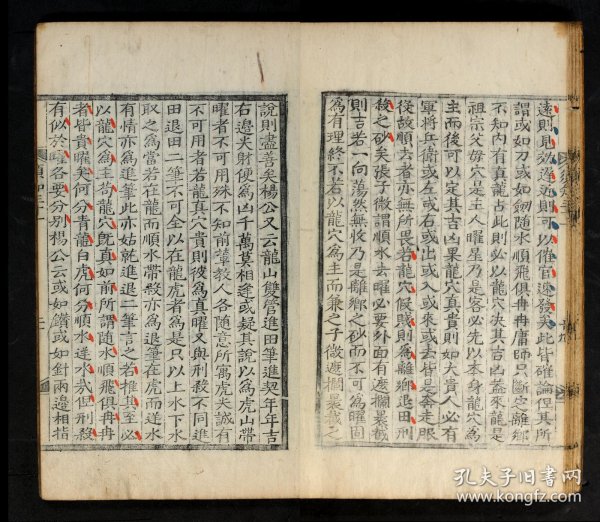 遠則見效遲近則可以催官速發矣此皆確論但其所
謂或如刀或如劒随水順飛俱冉冉庸師只断生離鄉
不知内有真龍占此則必以龍穴决其吉凶盖來龍是
祖宗父母穴是主人曜星乃是客必先以本身龍穴爲
主而後可以定其吉凶果龍穴真貴則如大貴人必有
軍將兵衛或左或右或出或入或來或去皆是奔走服
從故順去者亦無所畏若龍穴假賎則爲離鄉退田刑
殺之砂矣張子微謂順水去曜必要外面有遮攔暴截
則吉若一向蕩然無收乃是離鄉之砂而不可爲曜固
爲有理終不若以龍穴爲主而兼之子微遮攔暴截之
說則盡善矣楊公又云龍山雙管進田筆進契年年吉
右邊夹財便爲凶千萬莫相逢或疑其說以爲虎山帶
曜者不可用殊不知前輩教人各随意所寓虎夹誠有
不可用者若龍真穴貴則彼爲真曜又與刑殺不同進
田退田二筆不可全以在龍虎者爲是只以上水下水
取之爲當若在龍而順水帶殺亦爲退筆在虎而逆水
有情亦爲進筆此亦姑就進退二筆言之若推其至必
以龍穴爲主苟龍穴旣真如前所謂随水順飛俱冉冉
者皆貴曜矣何分青龍白虎何分順水逆水哉但刑殺
有似於曜各要分别楊公云或如鑚或如針兩邊相指
孔夫子旧书网
www.kongfz.com